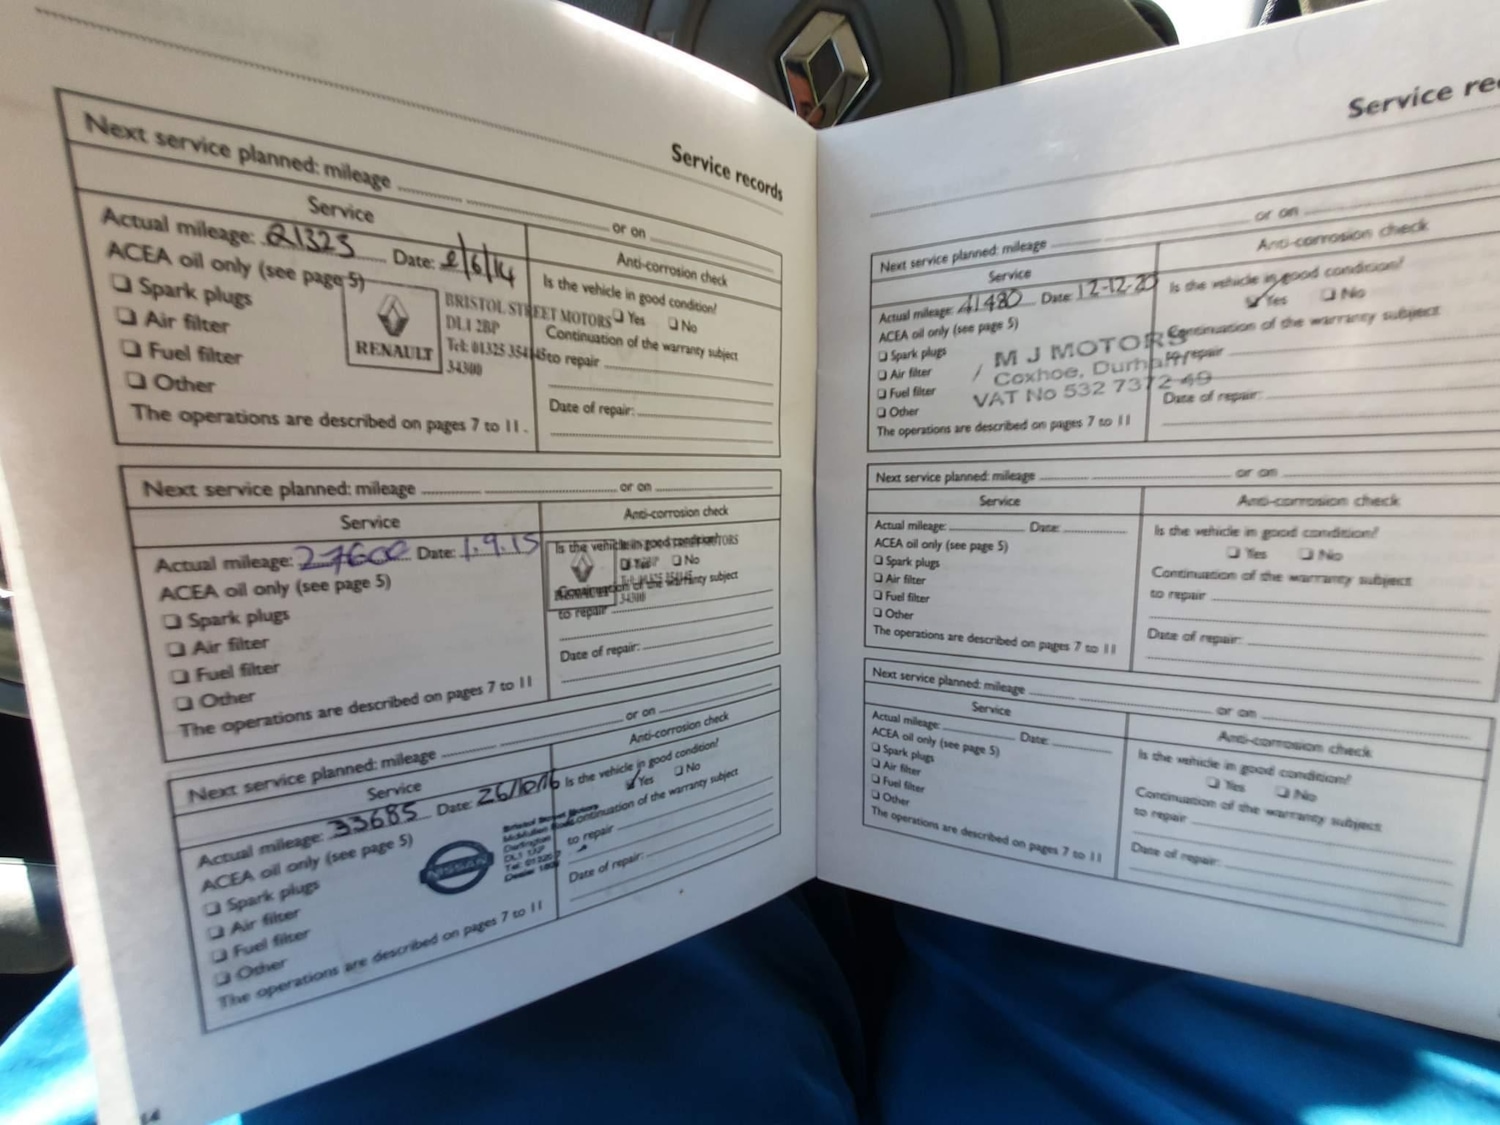 Service records
Next service planned: mileage
or on
Service
Anti-corrosion check
Actual mileage: 21323 Date: 2/6/14
ACEA oil only (see page 5)
Spark plugs
Air filter
Fuel filter
Other
The operations are described on pages 7 to 11.
RENAULT
BRISTOL STREET MOTORS
DL1 2BP
Tel: 01325 354145
34300
Is the vehicle in good condition?
Yes No
Continuation of the warranty subject
to repair
Date of repair:
Next service planned: mileage
or on
Service
Anti-corrosion check
Actual mileage: 27600 Date: 1.9.15
ACEA oil only (see page 5)
Spark plugs
Air filter
Fuel filter
Other
The operations are described on pages 7 to 11
Is the vehicle in good condition?
Yes No
Continuation of the warranty subject
to repair
34300
Date of repair:
Next service planned: mileage
or on
Service
Anti-corrosion check
Actual mileage: 33685 Date: 26/10/16
ACEA oil only (see page 5)
Spark plugs
Air filter
Fuel filter
Other
The operations are described on pages 7 to 11
NISSAN
Bristol Street Motors
McMullen Road
Darlington
DL1
Tel: 01325
Dealer
Is the vehicle in good condition?
Yes No
Continuation of the warranty subject
to repair
Date of repair:
14
Service rec
Next service planned: mileage
or on
Service
Anti-corrosion check
Actual mileage: 41480 Date: 12-12-20
ACEA oil only (see page 5)
Spark plugs
Air filter
Fuel filter
Other
The operations are described on pages 7 to 11
M J MOTORS
Coxhoe, Durham
VAT No 532 7372 49
Is the vehicle in good condition?
Yes No
Continuation of the warranty subject
to repair
Date of repair:
Next service planned: mileage
or on
Service
Anti-corrosion check
Actual mileage: Date:
ACEA oil only (see page 5)
Spark plugs
Air filter
Fuel filter
Other
The operations are described on pages 7 to 11
Is the vehicle in good condition?
Yes No
Continuation of the warranty subject
to repair
Date of repair:
Next service planned: mileage
or on
Service
Anti-corrosion check
Actual mileage: Date:
ACEA oil only (see page 5)
Spark plugs
Air filter
Fuel filter
Other
The operations are described on pages 7 to 11
Is the vehicle in good condition?
Yes No
Continuation of the warranty subject
to repair
Date of repair: